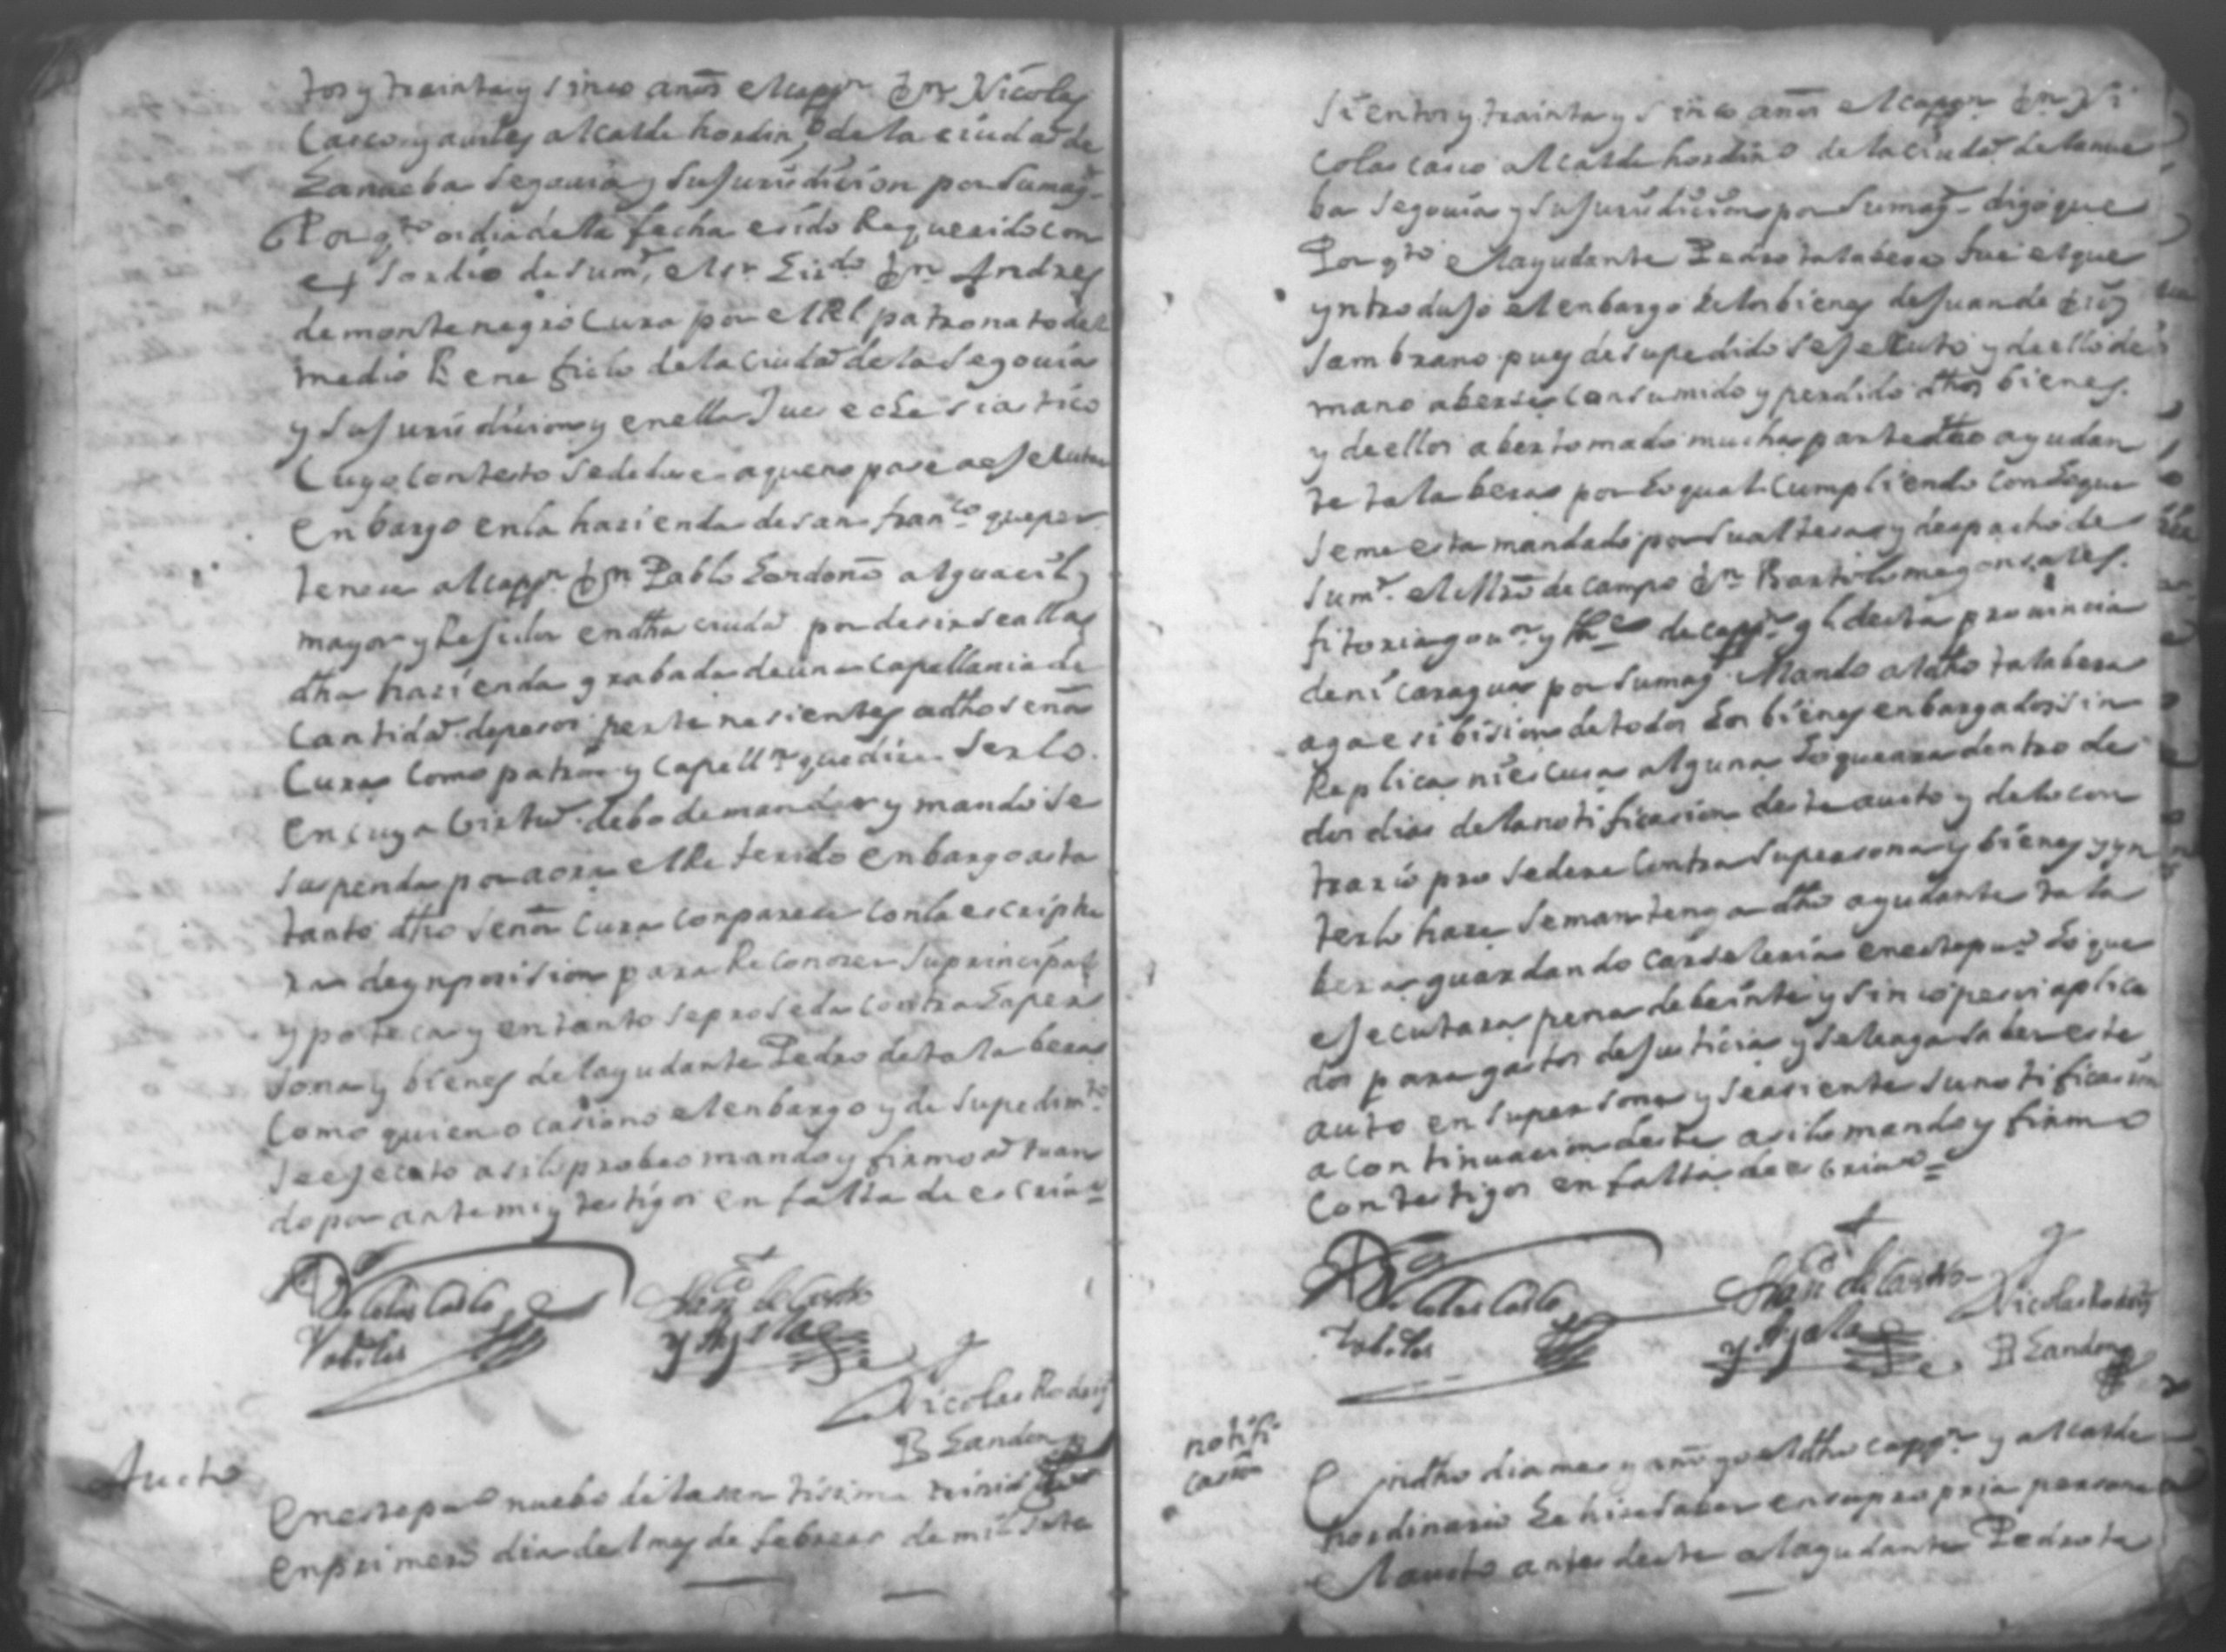 tos y trainta y sinco anōs el capp.n D.n Nicolas
Casco y aviles alcalde hordin.o de la ciudad de
La nueba Segouia y su Jurisdision por su mag.
Por q.to oi dia de la fecha e sido Requerido con
exsordio de su m.d el s.r Liz.do D.n Andres
de montenegro Cura por el Rl patronato del
medio Beneficio de la Ciudad de la Segouia
y su Jurisdision y en ella Jues eclesiastico
Cuyo Contesto se deduse a que no pase a esecutar
enbargo en la hazienda de san fran.co que per
tenese al capp.n D.n Pablo Lordoño alguacil
mayor y Rejidor en dha ciuda por desirse allas
dha hazienda grabada de una capellania de
Cantidad de pesos pertenesientes a dho señor
Cura Como patron y Capell.n que dise serlo.
en cuya birtud debo de mandar y mando se
suspenda por aora el Referido enbargo asta
tanto dho señor Cura conparese con la escriptu
ra de ynposision para Reconoser su principal
ypoteca y en tanto se proseda contra la per
sona y bienes del ayudante Pedro de talabera
Como quien ocasiono el enbargo y de su pedim.to
se esecuto asi lo probeo mando y firmo atuan
do por ante mi y testigos en falta de escriu.o
Nicolas Casco
y abiles
Fran.co de Castro
y Ayala
Nicolas Rodrig
B Landon
Aucto
En este pu.o nuebo de la santissima trinidad
en primero dia del mes de febrero de mil sete
sientos y trainta y sinco años el capp.n D.n Ni
colas casco alcalde hordin.o de la ciudad de la nue
ba Segouia y su Jurisdision por su mag. digo que
Por q.to el ayudante Pedro talabera fue el que
yntrodujo el enbargo de los bienes de Juan de Dios
sambrano pues de su pedido se Jecuto y de ello de
mano aberse consumido y perdido dhos bienes.
y de ellos aber tomado mucha parte dho ayudan
te talabera por lo qual Cumpliendo Con lo que
se me esta mandado por su altesa y despacho de
su m.d el Mro de campo D.n Bartolome gonsales.
fitoria gou.r y the de capp.n gl desta prouincia
de nicaragua por su mag. Mando al dho talabera
aga esibision de todos los bienes enbargados sin
Replica ni escusa alguna lo que ara dentro de
dos dias de la notificasion deste aucto y de lo con
trario prosedere Contra su persona y bienes y yn
terlo hase se mantenga dho ayudante tala
bera guardando carseleria en este pu.o lo que
esecutara pena de beinte y sinco pesos aplica
dos para gastos de Justicia y se le aga saber este
auto en su persona y se asiente su notificasion
a continuasion deste asi lo mando y firmo
Con testigos en falta de escriuano
Nicolas Casco
y abiles
Fran.co de Castro
y Ayala
Nicolas Rodrig
B Landon
notifi
casion
En dho dia mes y año yo el dho capp.n y alcalde
hordinario le hise saber en su propria persona
el aucto antes deste al ayudante Pedro ta